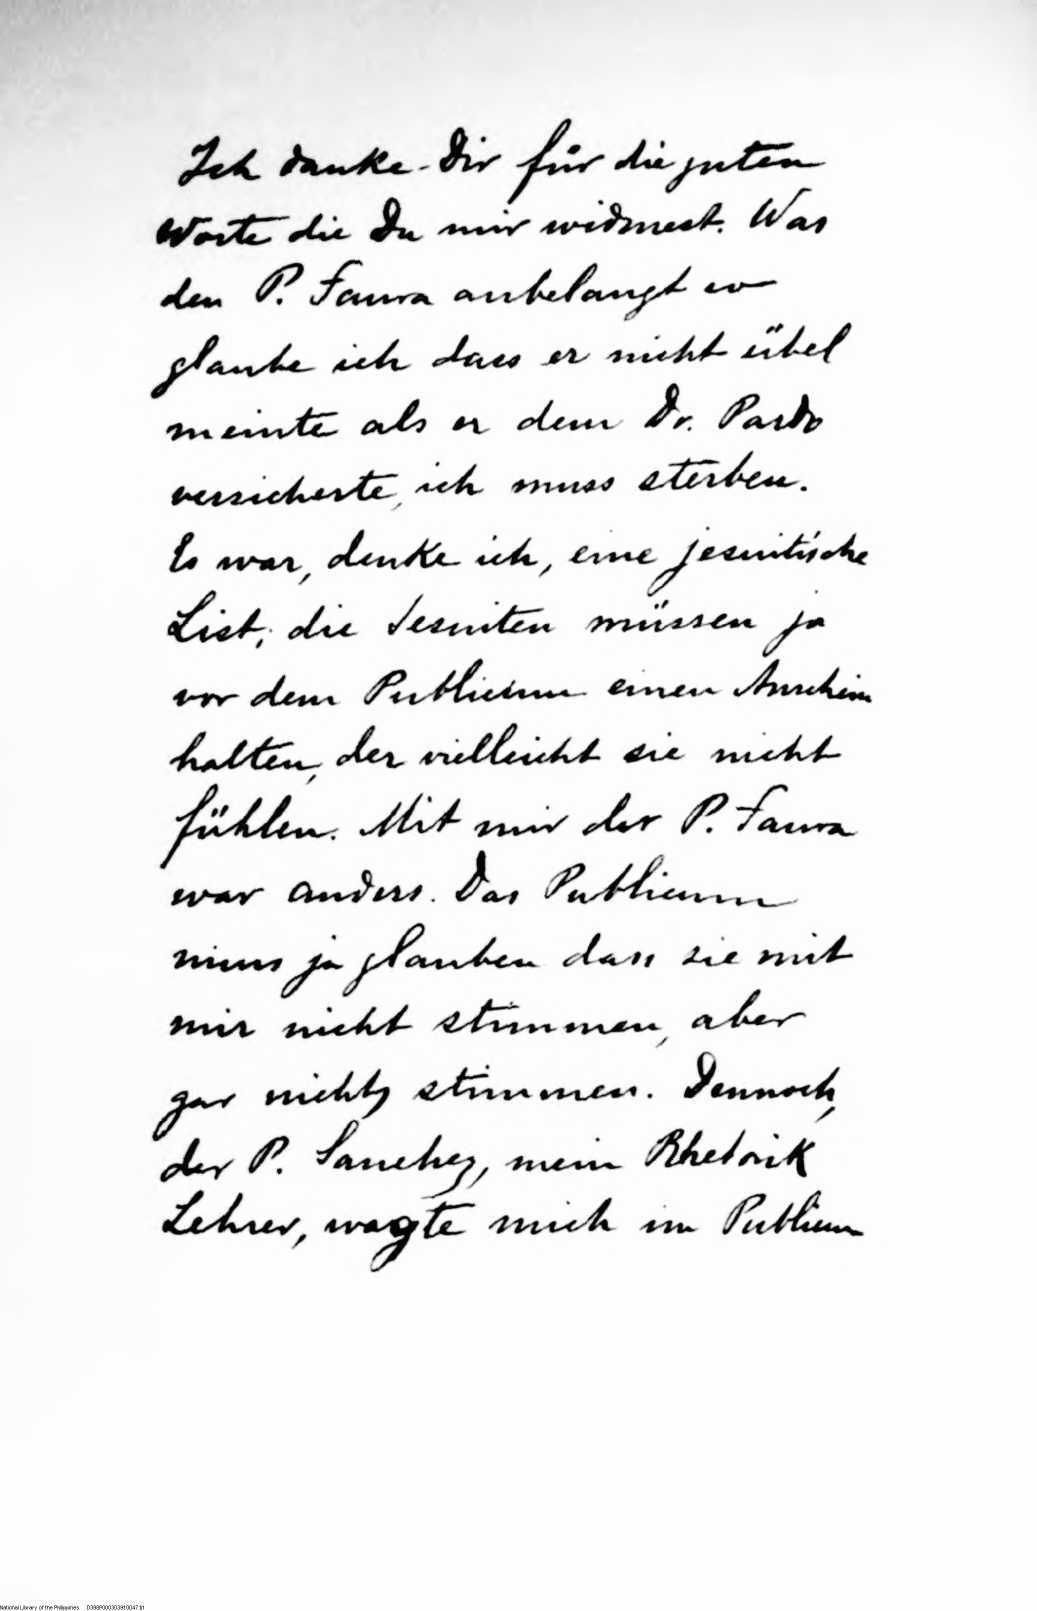 Ich danke Dir für die guten
Worte die Du mir widmest. Was
den P. Faura anbelangt so
glaube ich dass er nicht übel
meinte als er dem Dr. Pardo
versicherte, ich muss sterben.
Es war, denke ich, eine jesuitische
List; die Jesuiten müssen ja
vor dem Publicum einen Anschein
halten, der vielleicht sie nicht
fühlen. Mit mir der P. Faura
war anders. Das Publicum
muss ja glauben dass sie mit
mir nicht stimmen, aber
gar nichts stimmen. Dennoch,
der P. Sanchez, mein Rhetorik
Lehrer, wagte mich im Publicum
National Library of the Philippines